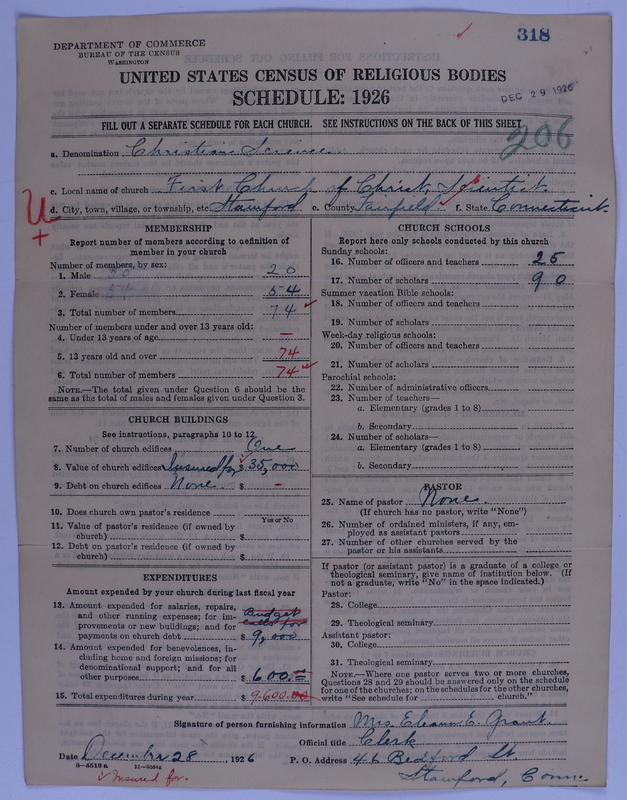 318
DEPARTMENT OF COMMERCE
BUREAU OF THE CENSUS
WASHINGTON
UNITED STATES CENSUS OF RELIGIOUS BODIES
SCHEDULE: 1926
DEC 29 1926
FILL OUT A SEPARATE SCHEDULE FOR EACH CHURCH. SEE INSTRUCTIONS ON THE BACK OF THIS SHEET
206
a. Denomination Christian Science
c. Local name of church First Church of Christ, Scientist.
d. City, town, village, or township, etc. Stamford e. County Fairfield f. State Connecticut.
MEMBERSHIP
Report number of members according to definition of member in your church
Number of members, by sex:
1. Male 20
2. Female 54
3. Total number of members 74
Number of members under and over 13 years old:
4. Under 13 years of age —
5. 13 years old and over 74
6. Total number of members 74
NOTE.—The total given under Question 6 should be the
same as the total of males and females given under Question 3.
CHURCH BUILDINGS
See instructions, paragraphs 10 to 12
7. Number of church edifices One
8. Value of church edifices Insured for $ 35,000
9. Debt on church edifices None. $ —
10. Does church own pastor's residence
Yes or No
11. Value of pastor's residence (if owned by
church) $
12. Debt on pastor's residence (if owned by
church) $
EXPENDITURES
Amount expended by your church during last fiscal year
13. Amount expended for salaries, repairs,
and other running expenses; for im-
provements or new buildings; and for
payments on church debt Budget calls for $ 9,000
14. Amount expended for benevolences, in-
cluding home and foreign missions; for
denominational support; and for all
other purposes $ 600.=
15. Total expenditures during year $ 9600.00
CHURCH SCHOOLS
Report here only schools conducted by this church
Sunday schools:
16. Number of officers and teachers 25
17. Number of scholars 90
Summer vacation Bible schools:
18. Number of officers and teachers
19. Number of scholars
Week-day religious schools:
20. Number of officers and teachers
21. Number of scholars
Parochial schools:
22. Number of administrative officers
23. Number of teachers—
a. Elementary (grades 1 to 8)
b. Secondary
24. Number of scholars—
a. Elementary (grades 1 to 8)
b. Secondary
PASTOR
25. Name of pastor None.
(If church has no pastor, write "None")
26. Number of ordained ministers, if any, em-
ployed as assistant pastors
27. Number of other churches served by the
pastor or his assistants
If pastor (or assistant pastor) is a graduate of a college or
theological seminary, give name of institution below. (If
not a graduate, write "No" in the space indicated.)
Pastor:
28. College
29. Theological seminary
Assistant pastor:
30. College
31. Theological seminary
NOTE.—Where one pastor serves two or more churches,
Questions 28 and 29 should be answered only on the schedule
for one of the churches; on the schedules for the other churches,
write "See schedule for church."
Signature of person furnishing information Mrs. Eleanor E. Grant.
Official title Clerk
Date December 28, 1926 P. O. Address 46 Bedford St.
Stamford, Conn.
8—5518a 11—9084
Insured for.